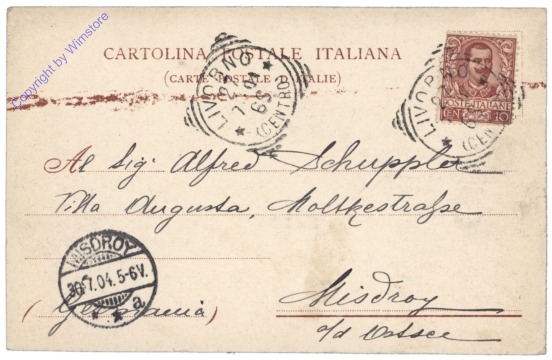 Copyright by Wimstore
CARTOLINA POSTALE ITALIANA
(CARTE POSTALE D'ITALIE)
LIVORNO
(CENTRO)
LIVORNO
(CENTRO)
POSTE ITALIANE
CENT. 10
Al Sig: Alfred Schuppler
Villa Augusta, Moltkestraße
MISDROY
30.7.04.5-6V.
a
Misdroy
(Germania)
a/d Ostsee